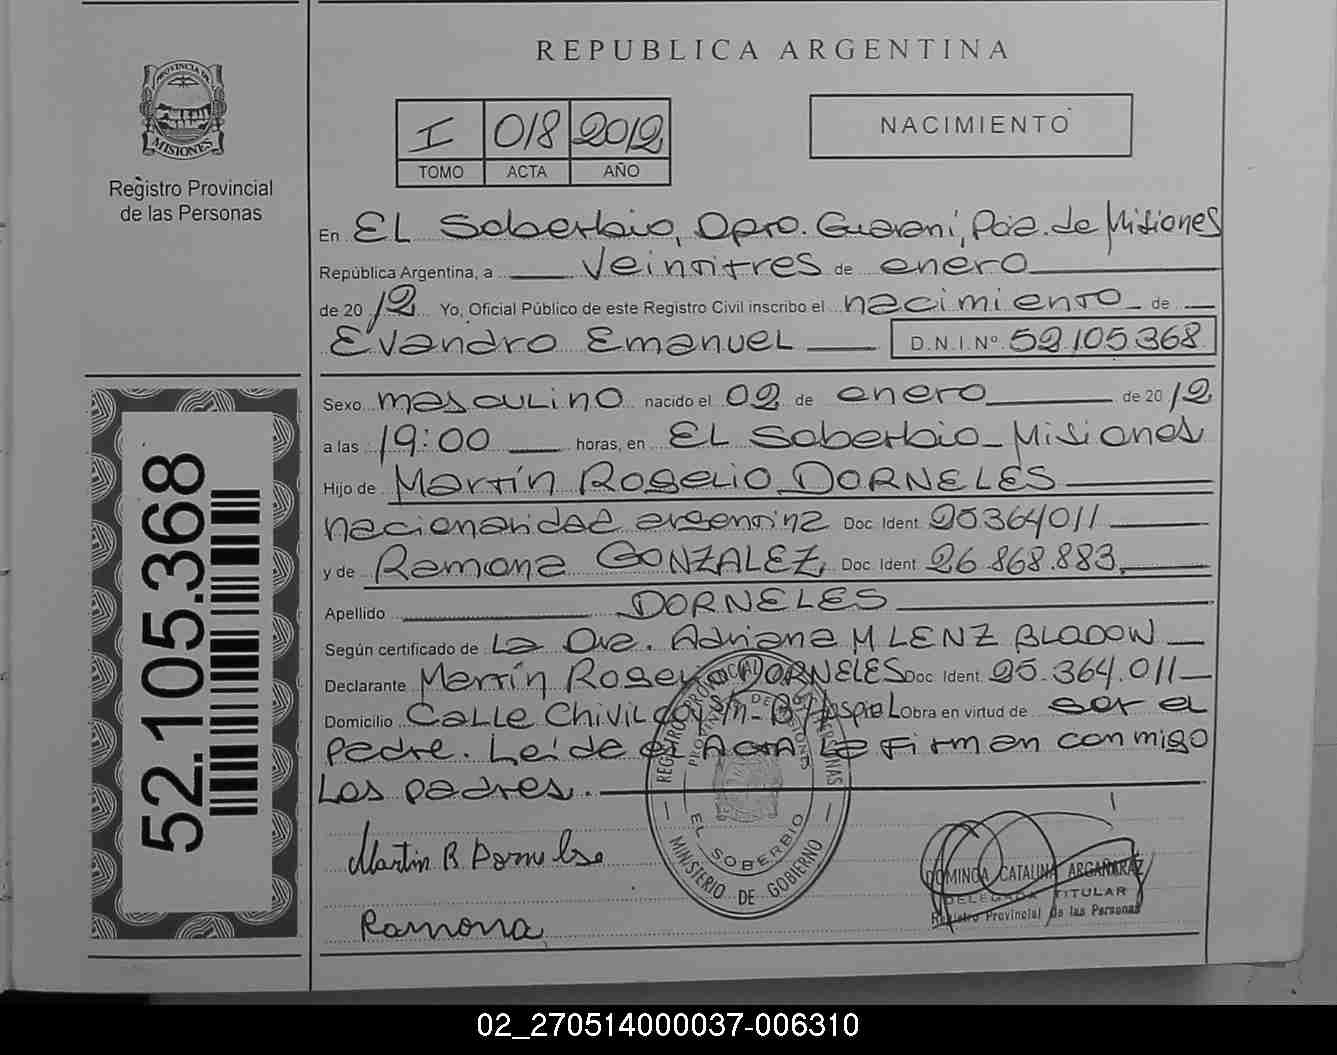 REPUBLICA ARGENTINA
PROVINCIA DE
MISIONES
Registro Provincial
de las Personas
I 018 2012
TOMO ACTA AÑO
NACIMIENTO
En EL Soberbio, Dpto. Guaraní, Pcia. de Misiones
República Argentina, a veintitres de enero
de 2012 Yo, Oficial Público de este Registro Civil inscribo el nacimiento de
Evandro Emanuel D.N.I.Nº 52.105.368
Sexo masculino nacido el 02 de enero de 2012
a las 19:00 horas, en EL Soberbio - Misiones
Hijo de Martín Rogelio DORNELES
nacionalidad argentina Doc. Ident. 25364011
y de Ramona GONZALEZ, Doc. Ident. 26.868.883.
Apellido DORNELES
Según certificado de La Dra. Adriana M LENZ BLADOW
Declarante Martín Rogelio DORNELES Doc. Ident. 25.364.011
Domicilio Calle Chivilcoy s/n - Bº Hospital Obra en virtud de ser el
padre. Leída el Acta la firman conmigo
los padres.
52.105.368
REGISTRO PROVINCIAL DE LAS PERSONAS
PROVINCIA DE MISIONES
EL SOBERBIO
MINISTERIO DE GOBIERNO
Martin R Dornelse
Ramona
DOMINGA CATALINA ARGAÑARAZ
DELEGADA TITULAR
Registro Provincial de las Personas
02_270514000037-006310